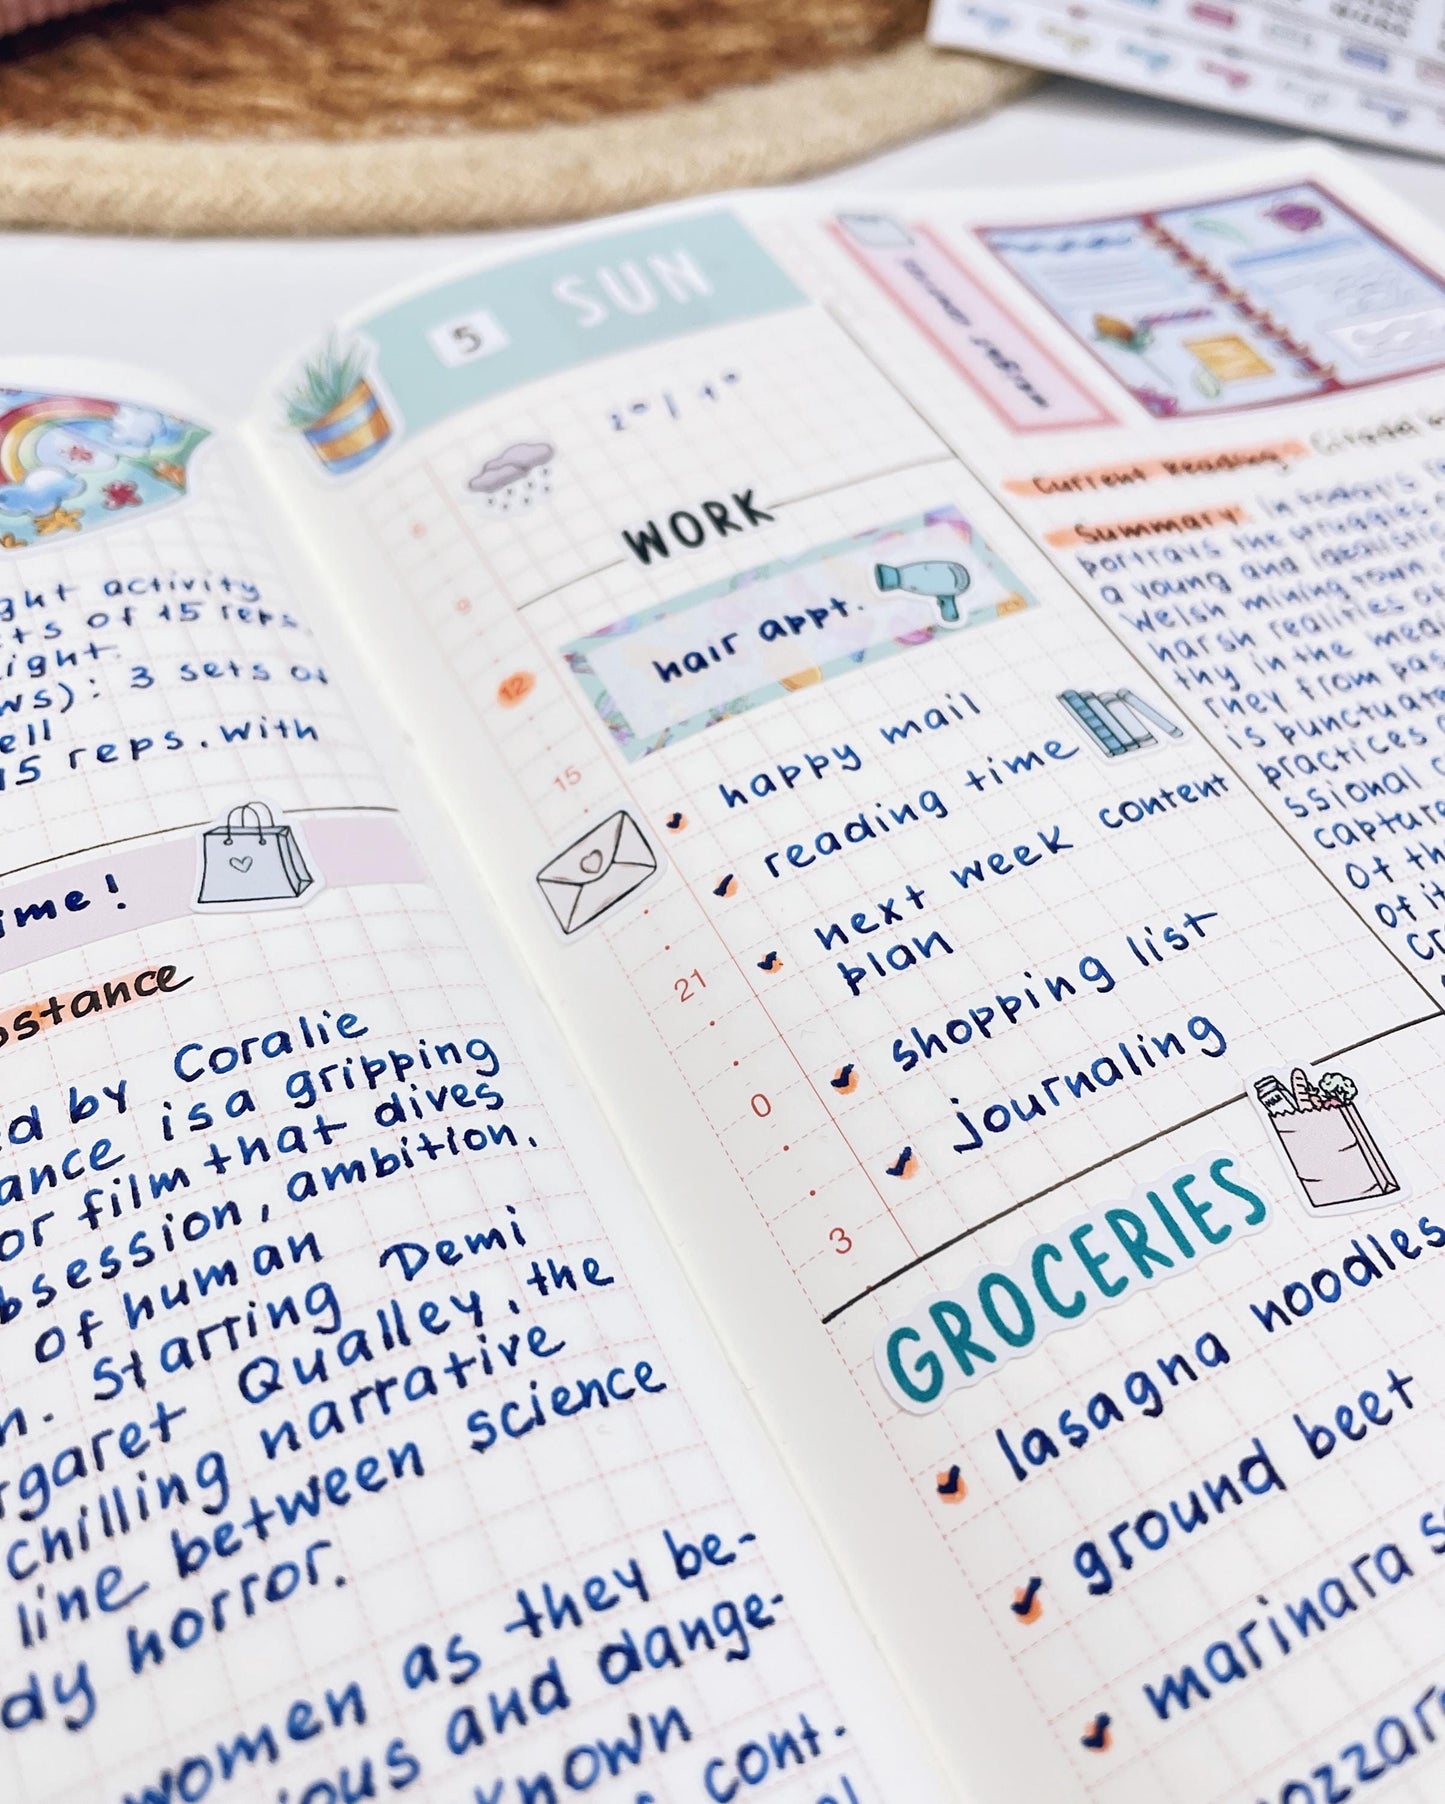 ght activity
ts of 15 reps.
ight.
ws): 3 sets of
ell
15 reps. with
ime!
bstance
ed by Coralie
ance is a gripping
or film that dives
bsession, ambition,
of human
n. Starring Demi
rgaret Qualley, the
chilling narrative
line between science
dy horror.
women as they be-
ious and dange-
known
cont.
5 SUN
WORK
hair appt.
happy mail
reading time
next week content
plan
shopping list
journaling
9
12
15
21
0
3
GROCERIES
lasagna noodles
ground beet
marinara s
ozzar
Current Reading: Citadel
Summary: In today's re
portrays the struggles
a young and idealistic
Welsh mining town.
harsh realities
thy in the medi
rney from pas
is punctuate
practices
ssional
capture
of th
of it
cr